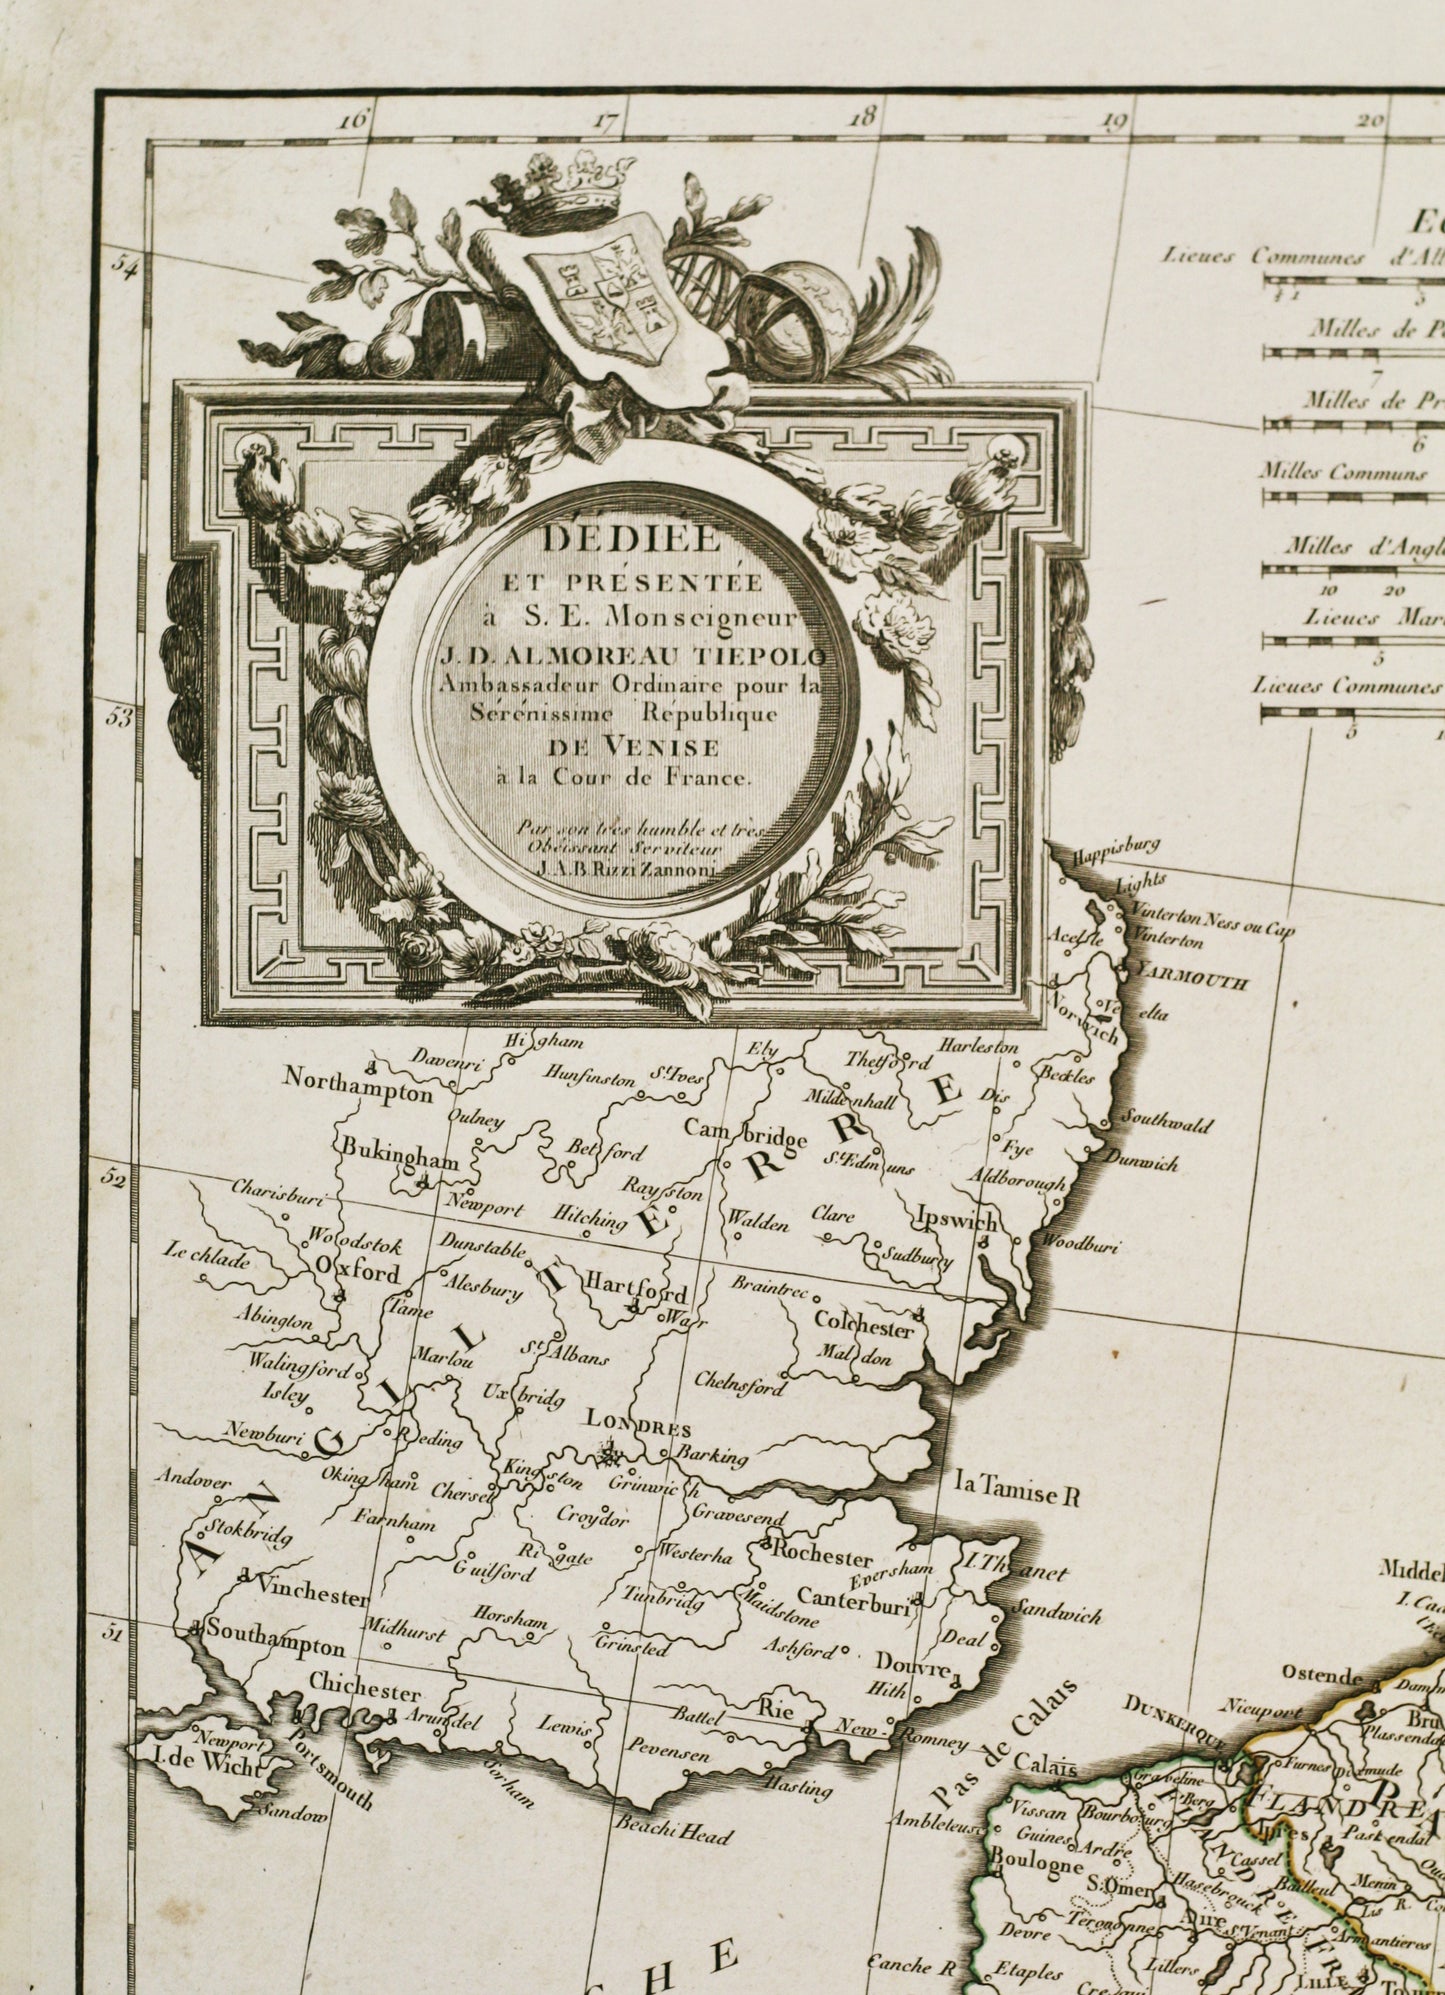 16 17 18 19 20
54
53
52
51
DÉDIÉE
ET PRÉSENTÉE
à S. E. Monseigneur
J. D. ALMOREAU TIEPOLO
Ambassadeur Ordinaire pour la
Sérénissime République
DE VENISE
à la Cour de France.
Par son très humble et très
Obéissant Serviteur
J. A. B. Rizzi Zannoni
Lieues Communes d'All
Milles de P
7
Milles de Pr
6
Milles Communs
Milles d'Angl
10 20
Lieues Mar
5
Lieues Communes
5
Happisburg
Lights
Vinterton Ness ou Cap
Vinterton
Acelste
YARMOUTH
Norwich
elta
Davenri
Higham
Northampton
Hunfinston
St. Ives
Ely
Thetford
Harleston
Beckles
Mildenhall
Dis
Oulney
Cambridge
Southwald
Bukingham
Betford
St. Edmuns
Fye
Dunwich
Aldborough
Charisburi
Newport
Hitching
Rayston
Walden
Clare
Ipswich
Woodburi
Woodstok
Dunstable
Sudbury
Le chlade
Oxford
Alesbury
Hartford
Braintree
Tame
Warr
Colchester
Abington
Maldon
Walingford
Marlou
St. Albans
Chelnsford
Isley
Uxbridg
LONDRES
Newburi
Reding
Barking
Andover
Okingham
Chersell
Kingston
Grinwich
la Tamise R
Stokbridg
Farnham
Croydor
Gravesend
Rigate
Westerha
Rochester
Eversham
I. Thanet
Vinchester
Guilford
Tunbridg
Maidstone
Canterburi
Sandwich
Southampton
Midhurst
Horsham
Grinsted
Ashford
Deal
Douvre
Chichester
Hith
Arundel
Lewis
Battel
Rie
New Romney
Newport
I. de Wicht
Portsmouth
Pevensen
Sandow
Sorham
Hasting
Beachi Head
ANGLETERRE
Pas de Calais
CHE
Middel
I. Cad
Ostende
Damm
DUNKERQUE
Nieuport
Bru
Plassenda
Calais
Graveline
Furnes
Dixmude
Berg
FLANDRE
Ambleteuse
Vissan
Bourbourg
Guines
Ardre
Ipres
Paskendal
Boulogne
Cassel
S. Omer
Hasebrouck
Bailleul
Menin
Lis R.
Devre
Terouenne
Aire
St. Venant
Armantieres
Canche R
Etaples
Lillers
LILLE